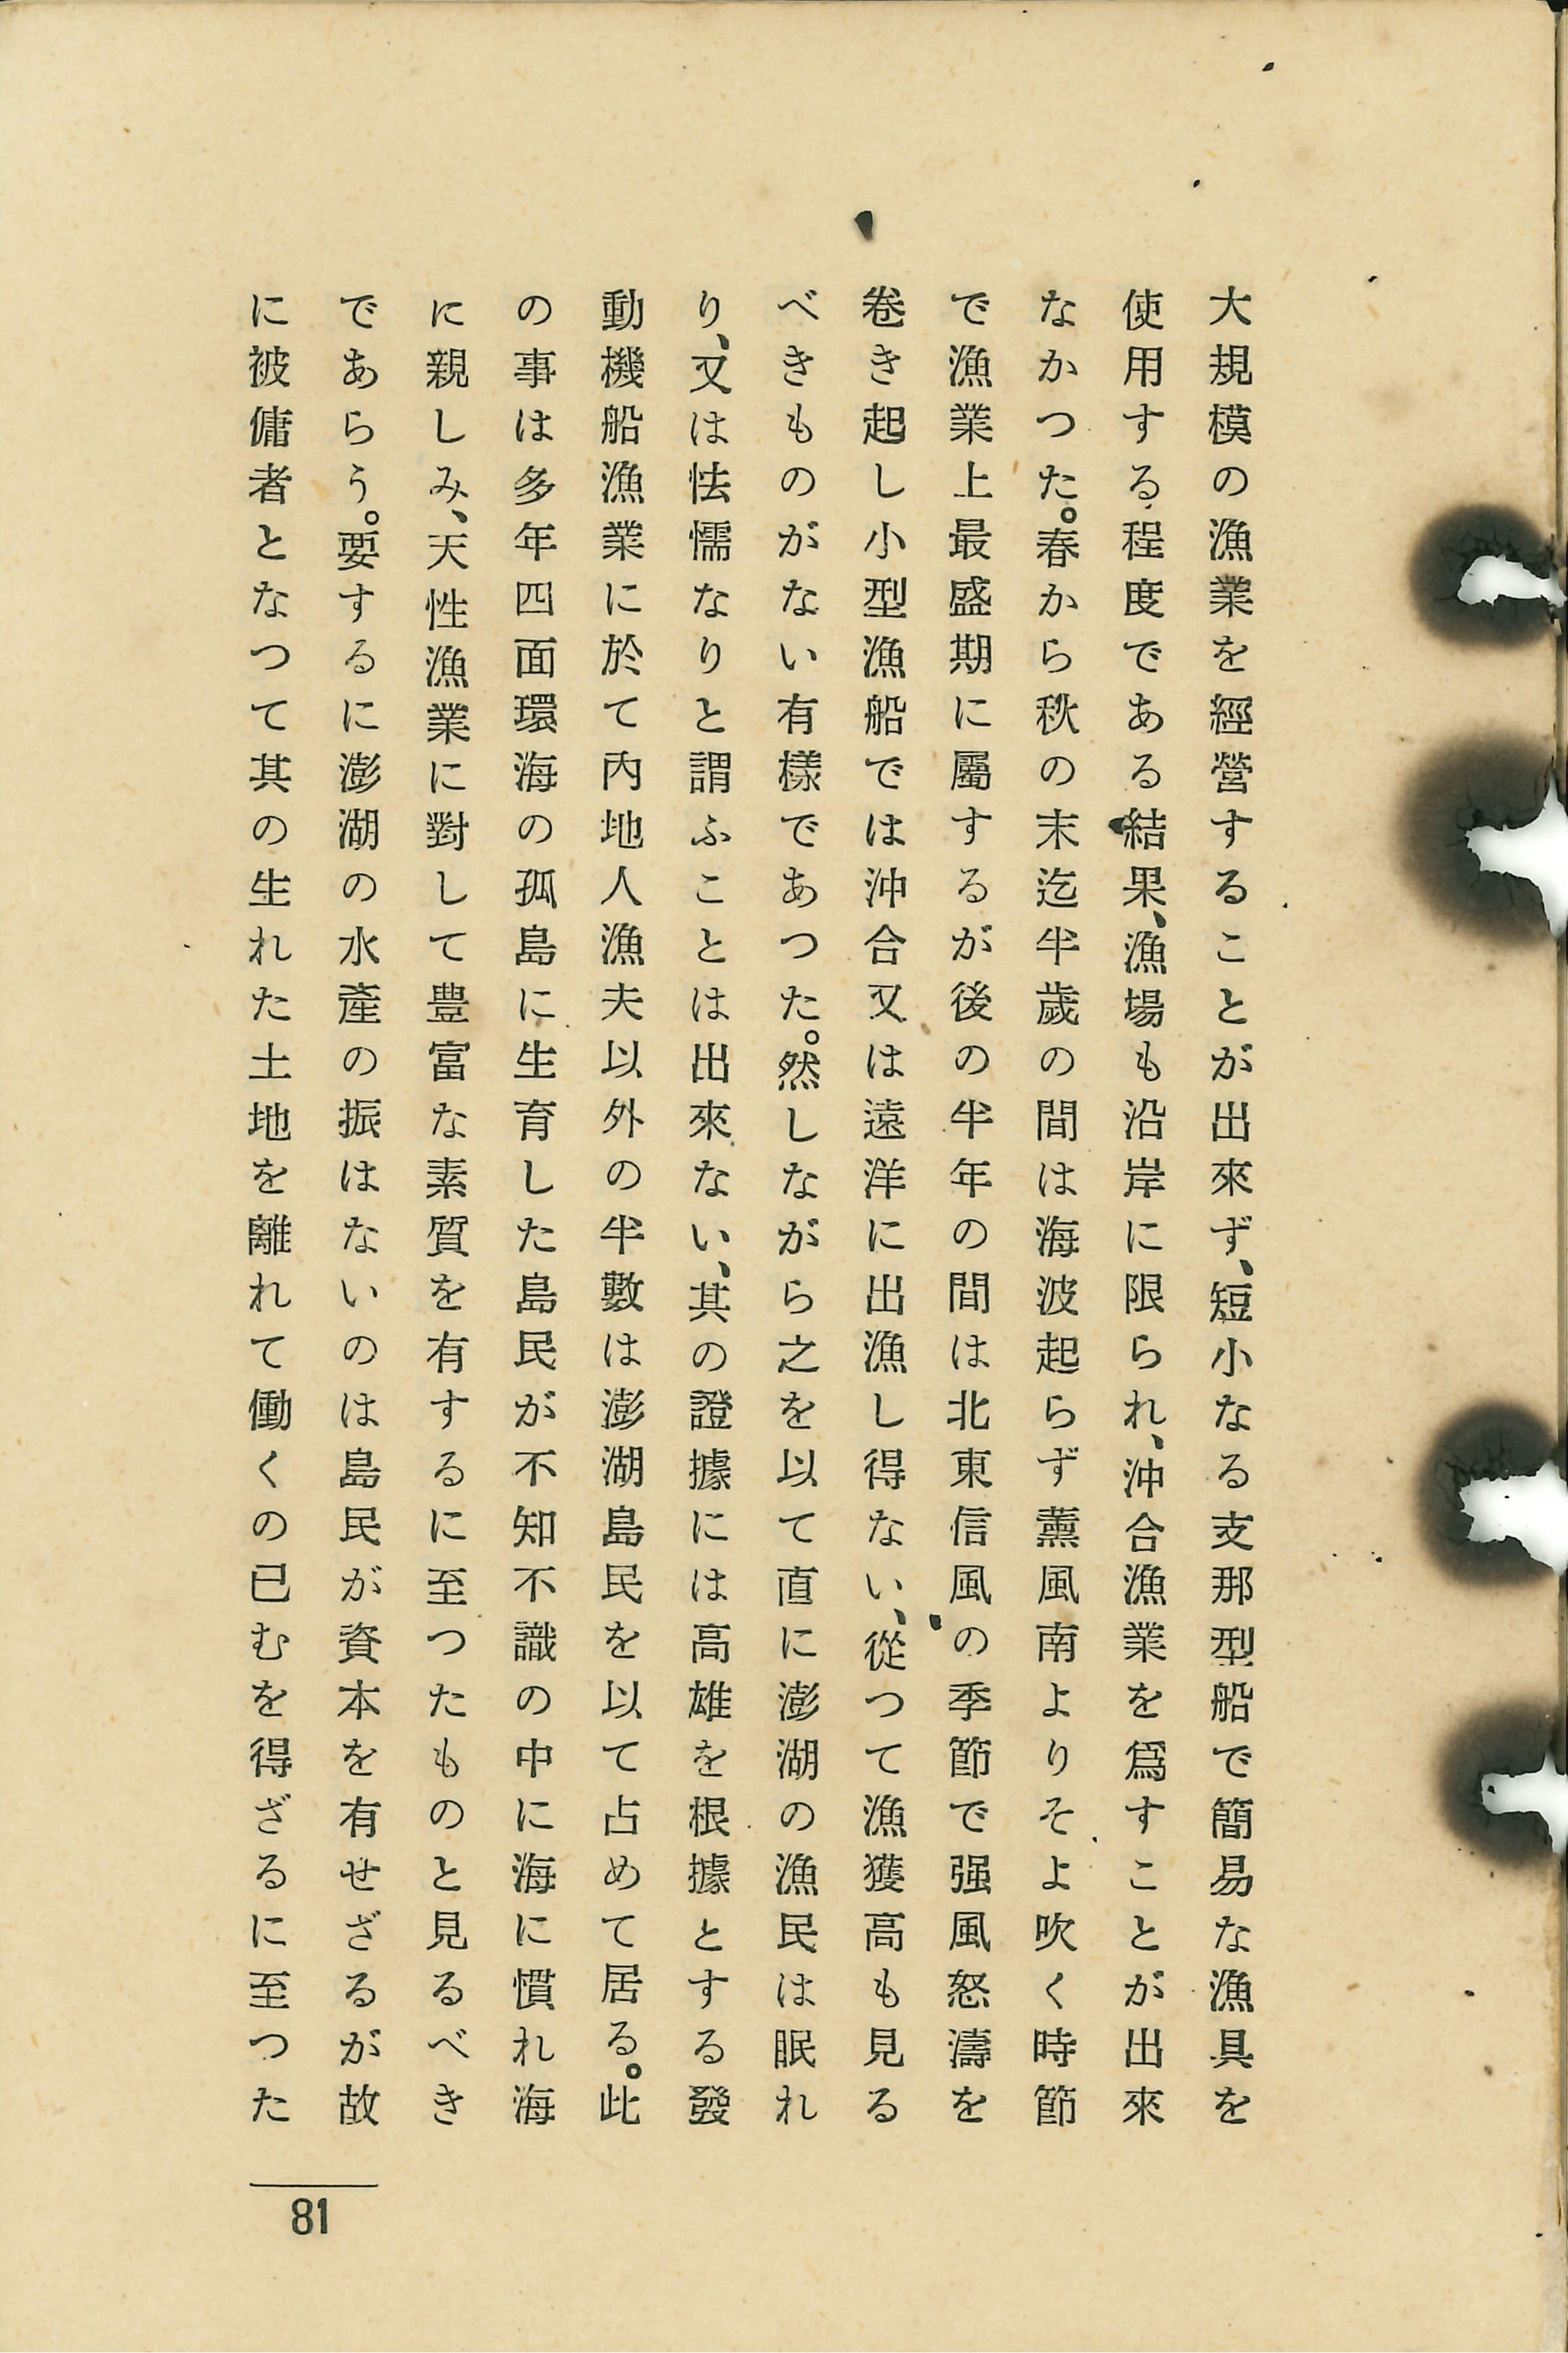 大規模の漁業を經營することが出來ず、短小なる支那型船で簡易な漁具を
使用する程度である結果、漁場も沿岸に限られ、沖合漁業を爲すことが出來
なかつた。春から秋の末迄半歲の間は海波起らず薰風南よりそよ吹く時節
で漁業上最盛期に屬するが後の半年の間は北東信風の季節で强風怒濤を
卷き起し小型漁船では沖合又は遠洋に出漁し得ない、從つて漁獲高も見る
べきものがない有樣であつた。然しながら之を以て直に澎湖の漁民は眠れ
り、又は怯懦なりと謂ふことは出來ない、其の證據には高雄を根據とする發
動機船漁業に於て內地人漁夫以外の半數は澎湖島民を以て占めて居る。此
の事は多年四面環海の孤島に生育した島民が不知不識の中に海に慣れ海
に親しみ、天性漁業に對して豊富な素質を有するに至つたものと見るべき
であらう。要するに澎湖の水產の振はないのは島民が資本を有せざるが故
に被傭者となつて其の生れた土地を離れて働くの已むを得ざるに至つた
81